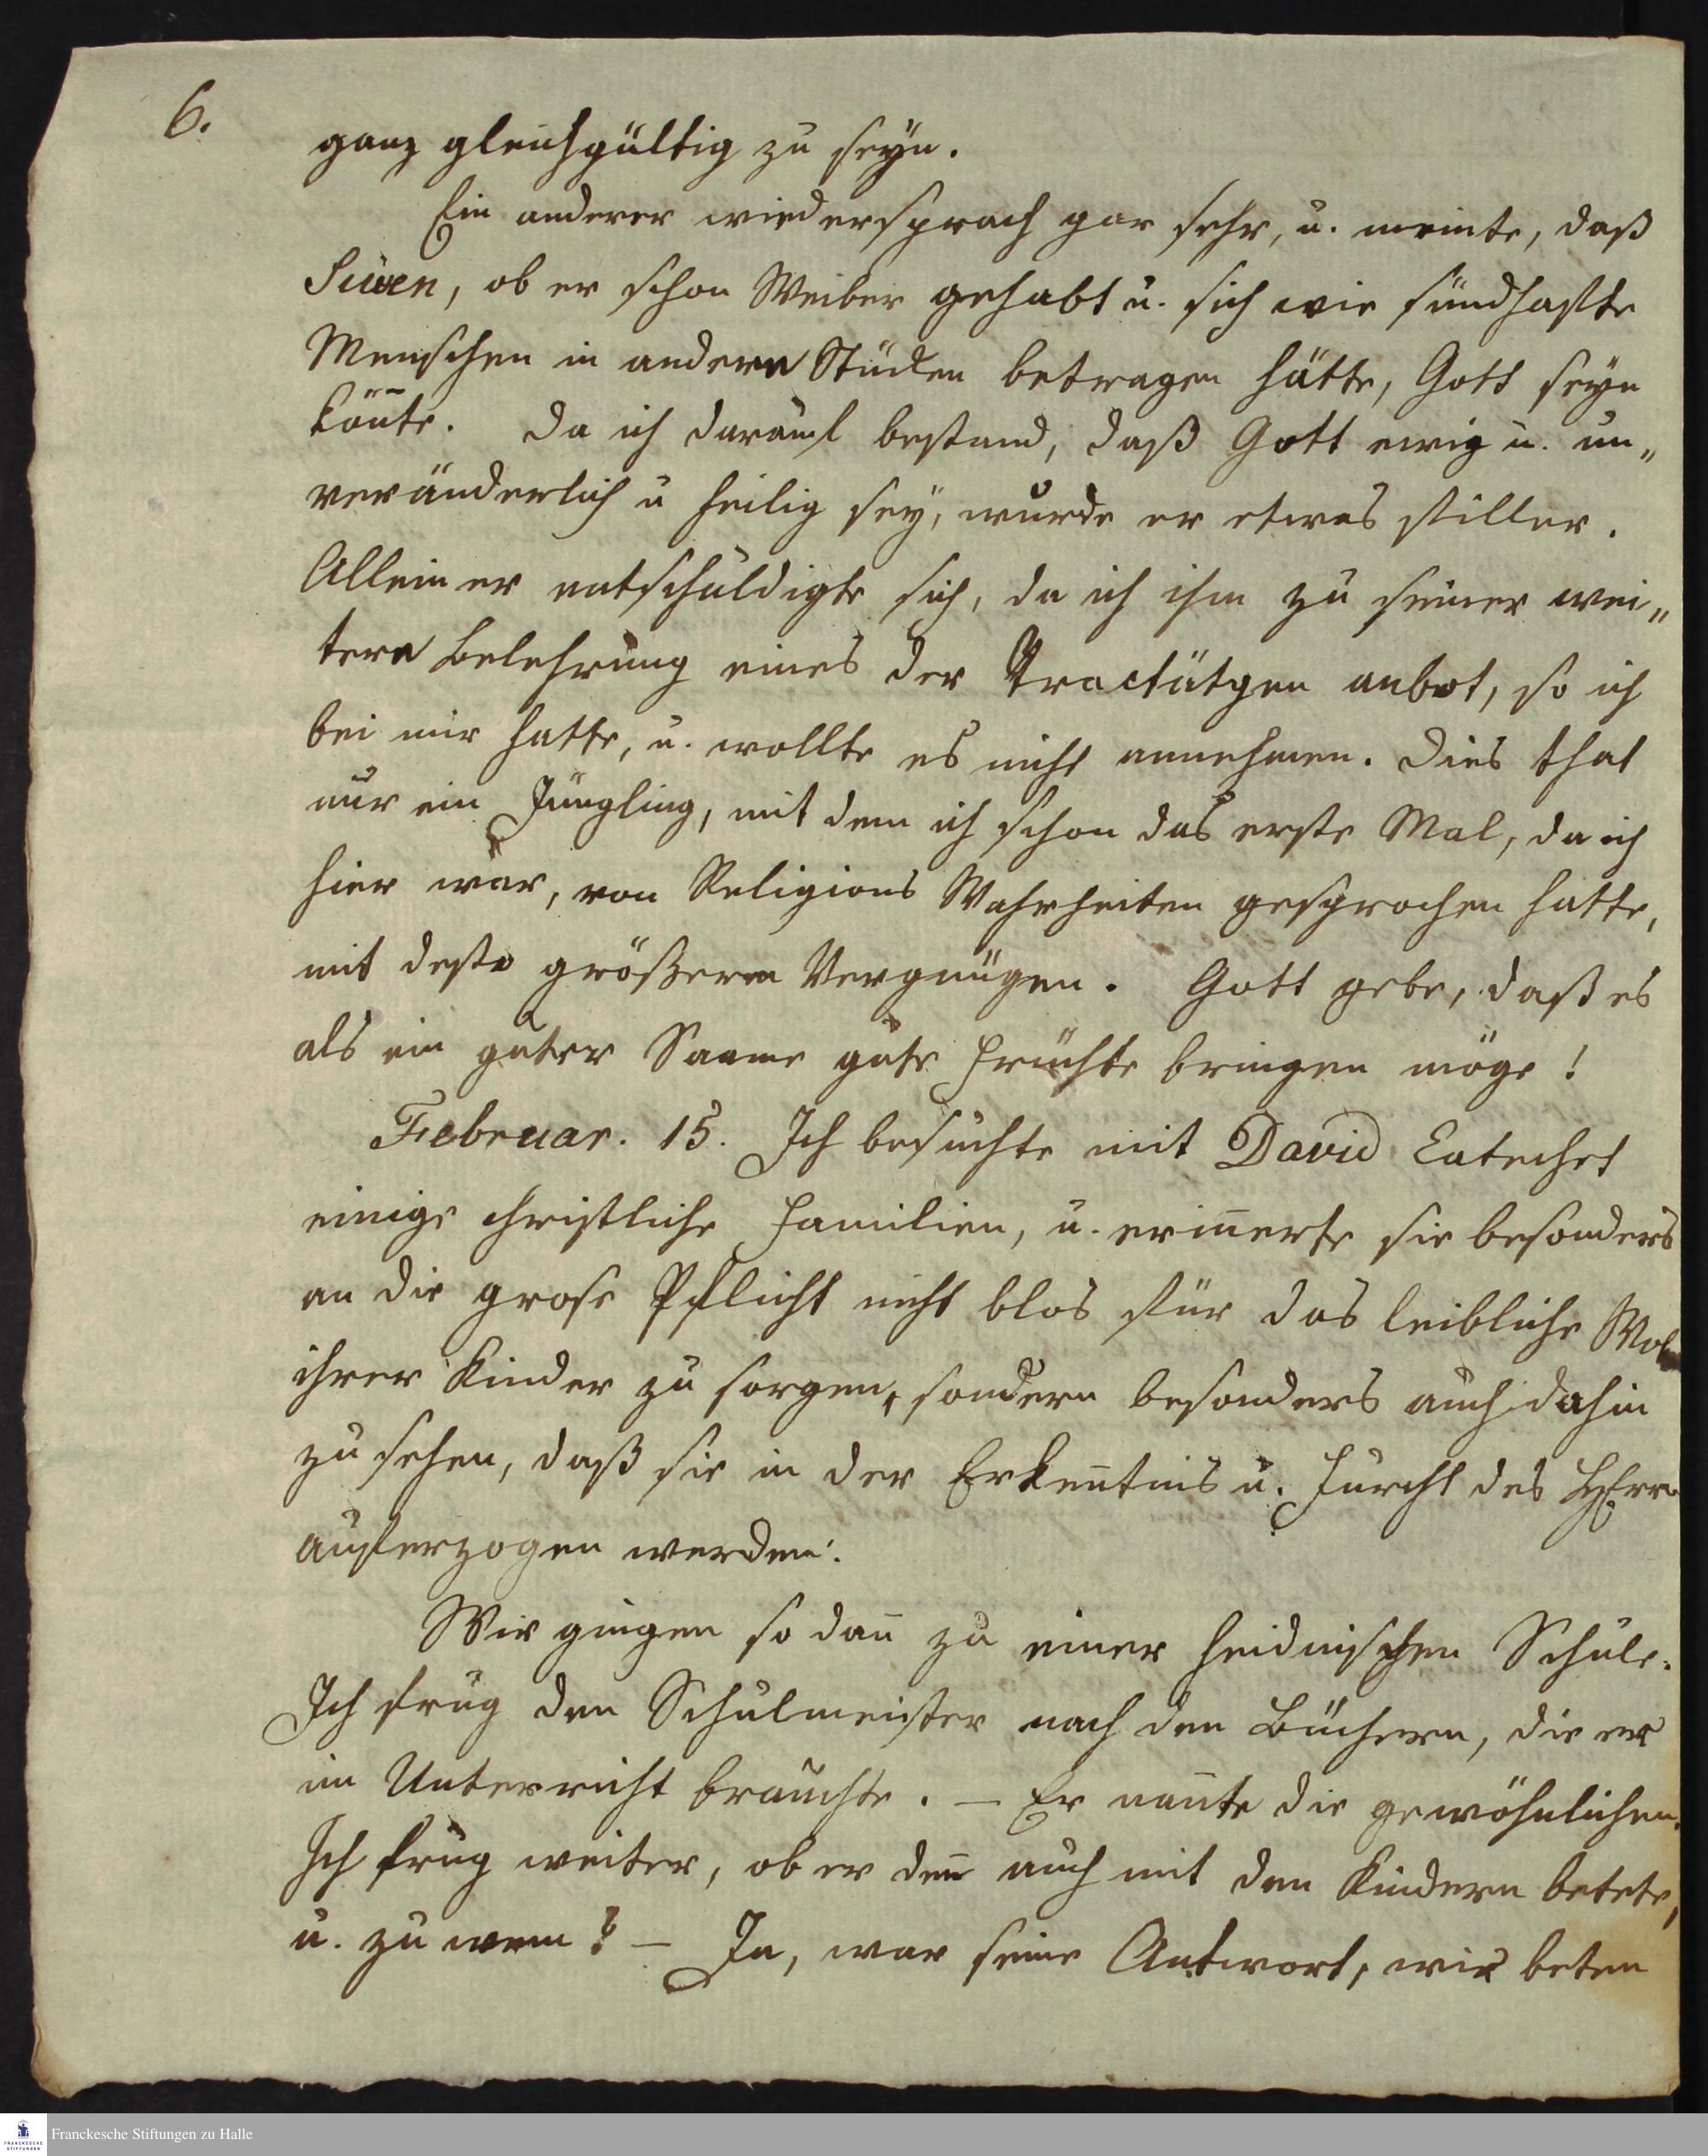 6.
ganz gleichgültig zu seyn.
Ein anderer wiedersprach gar sehr, u. meinte, daß
Siwen, ob er schon Weiber gehabt u. sich wie sündhafte
Menschen in andern Stücken betragen hätte, Gott seyn
köñte. Da ich darauf bestand, daß Gott ewig u. un„
veränderlich u heilig sey, wurde er etwas stiller.
Allein er entschuldigte sich, da ich ihm zu seiner wei„
tern Belehrung eines der Tractätgen anbot, so ich
bei mir hatte, u. wollte es nicht annehmen. Dies that
nur ein Jüngling, mit dem ich schon das erste Mal, da ich
hier war, von Religions Wahrheiten gesprochen hatte,
mit desto größerem Vergnügen. Gott gebe, daß es
als ein guter Saame gute Früchte bringen möge!
Februar. 15. Ich besuchte mit David Catechet
einige christliche Familien, u. eriñerte sie besonders
an die grose Pflicht nicht blos für das leibliche Wol
ihrer Kinder zu sorgen, sondern besonders auch dahin
zu sehen, daß sie in der Erkeñtnis u. Furcht des HErrn
auferzogen werden.
Wir gingen so dañ zu einer heidnischen Schule.
Ich frug den Schulmeister nach den Büchern, die er
im Unterricht brauchte. — Er nañte die gewöhnlichen.
Ich frug weiter, ob er deñ auch mit den Kindern betete,
u. zu wem? — Ja, war seine Antwort, wir beten
Franckesche Stiftungen zu Halle
FRANCKESCHE
STIFTUNGEN